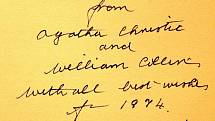 from
Agatha Christie
and
William Collins
with all best wishes
1974.